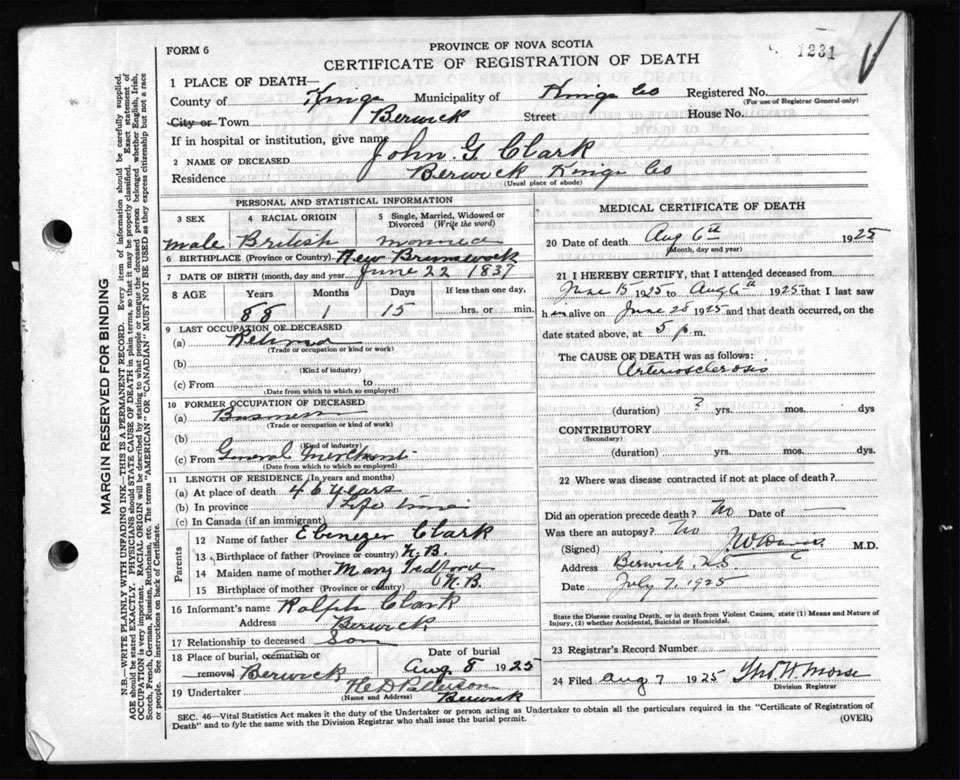 1231
FORM 6
PROVINCE OF NOVA SCOTIA
CERTIFICATE OF REGISTRATION OF DEATH
1 PLACE OF DEATH—
County of Kings Municipality of Kings Co Registered No.
(For use of Registrar General only)
City or Town Berwick Street House No.
If in hospital or institution, give name
2 NAME OF DECEASED John G Clark
Residence Berwick Kings Co
(Usual place of abode)
PERSONAL AND STATISTICAL INFORMATION
3 SEX 4 RACIAL ORIGIN 5 Single, Married, Widowed or Divorced (Write the word)
Male British Married
6 BIRTHPLACE (Province or Country) New Brunswick
7 DATE OF BIRTH (month, day and year) June 22 1837
8 AGE Years Months Days If less than one day,
88 1 15 hrs. or min.
9 LAST OCCUPATION OF DECEASED
(a) Retired
(Trade or occupation or kind or work)
(b)
(Kind of industry)
(c) From to
(Date from which to which so employed)
10 FORMER OCCUPATION OF DECEASED
(a) Business
(Trade or occupation or kind of work)
(b)
(Kind of industry)
(c) From General Merchant
(Date from which to which so employed)
11 LENGTH OF RESIDENCE (In years and months)
(a) At place of death 46 years
(b) In province Life time
(c) In Canada (if an immigrant)
Parents
12 Name of father Ebenezer Clark
13 Birthplace of father (Province or country) N.B.
14 Maiden name of mother Mary Tedford
15 Birthplace of mother (Province or country) N B
16 Informant's name Ralph Clark
Address Berwick
17 Relationship to deceased Son
18 Place of burial, cremation or removal Berwick Date of burial Aug 8 1925
19 Undertaker Patterson
(Name and Address) Berwick
MEDICAL CERTIFICATE OF DEATH
20 Date of death Aug 6th 1925
(Month, day and year)
21 I HEREBY CERTIFY, that I attended deceased from
June 15 1925 to Aug 6th 1925 that I last saw
h im alive on June 25 1925 and that death occurred, on the
date stated above, at 5 p m.
The CAUSE OF DEATH was as follows:
Arteriosclerosis
(duration) ? yrs. mos. dys
CONTRIBUTORY
(Secondary)
(duration) yrs. mos. dys.
22 Where was disease contracted if not at place of death?
Did an operation precede death? No Date of —
Was there an autopsy? No
(Signed) M.D.
Address Berwick, N.S.
Date July 7, 1925
State the Disease causing Death, or in death from Violent Causes, state (1) Means and Nature of
Injury, (2) whether Accidental, Suicidal or Homicidal.
23 Registrar's Record Number
24 Filed Aug 7 1925 Morse
Division Registrar
SEC. 46—Vital Statistics Act makes it the duty of the Undertaker or person acting as Undertaker to obtain all the particulars required in the "Certificate of Registration of
Death" and to fyle the same with the Division Registrar who shall issue the burial permit.
(OVER)
MARGIN RESERVED FOR BINDING
N.B.—WRITE PLAINLY WITH UNFADING INK—THIS IS A PERMANENT RECORD. Every item of information should be carefully supplied.
AGE should be stated EXACTLY. PHYSICIANS should STATE CAUSE OF DEATH in plain terms, so that it may be properly classified. Exact statement of
OCCUPATION is very important. RACIAL ORIGIN will be described by stating to what people or tongue the deceased person belonged whether English, Irish,
Scotch, French, German, Russian, Ruthenian, etc. The terms "AMERICAN" OR "CANADIAN" MUST NOT BE USED as they express citizenship but not a race
or people. See instructions on back of Certificate.